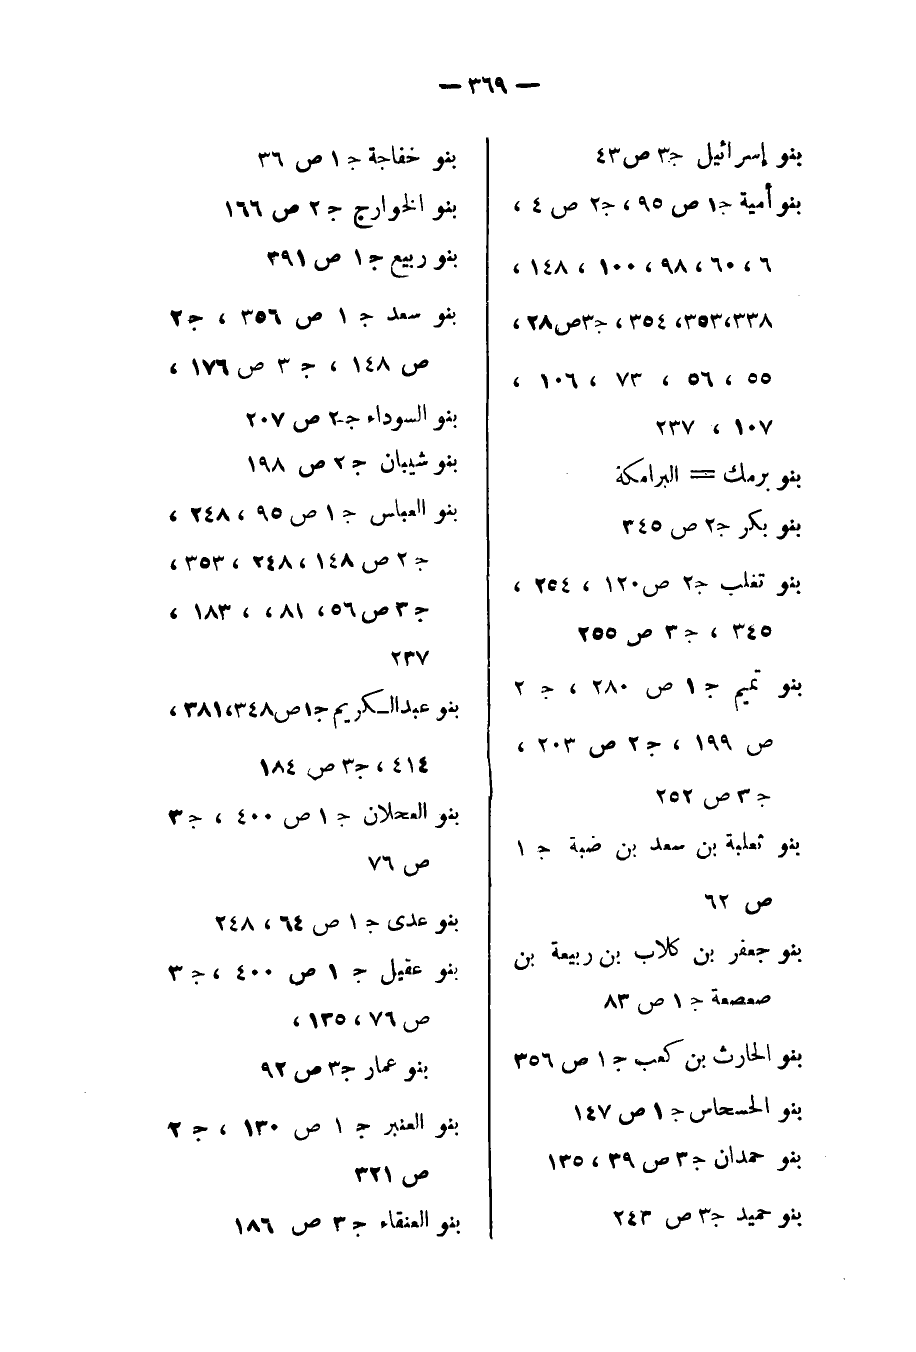 — ٣٦٩ —
بنو إسرائيل ج٣ ص٤٣
بنو أمية ج١ ص ٩٥ ، ج٢ ص ٤ ،
٦ ، ٦٠ ، ٩٨ ، ١٠٠ ، ١٤٨ ،
٣٣٨،٣٥٣، ٣٥٤ ، ج٣ص٢٨ ،
٥٥ ، ٥٦ ، ٧٣ ، ١٠٦ ،
١٠٧ ، ٢٣٧
بنو برمك = البرامكة
بنو بكر ج٢ ص ٣٤٥
بنو تغلب ج٢ ص١٢٠ ، ٢٥٤ ،
٣٤٥ ، ج ٣ ص ٢٥٥
بنو تميم ج ١ ص ٢٨٠ ، ج ٢
ص ١٩٩ ، ج ٢ ص ٢٠٣ ،
ج ٣ ص ٢٥٢
بنو ثعلبة بن سعد بن ضبة ج ١
ص ٦٢
بنو جعفر بن كلاب بن ربيعة بن
صعصعة ج ١ ص ٨٣
بنو الحارث بن كعب ج ١ ص ٣٥٦
بنو الحسحاس ج ١ ص ١٤٧
بنو حمدان ج ٣ ص ٣٩ ، ١٣٥
بنو حميد ج٣ ص ٢٤٣
بنو خفاجة ج ١ ص ٣٦
بنو الخوارج ج ٢ ص ١٦٦
بنو ربيع ج ١ ص ٣٩١
بنو سعد ج ١ ص ٣٥٦ ، ج ٢
ص ١٤٨ ، ج ٣ ص ١٧٦ ،
بنو السوداء ج٢ ص ٢٠٧
بنو شيبان ج ٢ ص ١٩٨
بنو العباس ج ١ ص ٩٥ ، ٢٤٨ ،
ج ٢ ص ١٤٨ ، ٢٤٨ ، ٣٥٣ ،
ج ٣ ص ٥٦ ، ٨١ ، ، ١٨٣ ،
٢٣٧
بنو عبدالكريم ج١ص٣٤٨،٣٨١ ،
٤١٤ ، ج٣ ص ١٨٤
بنو العجلان ج ١ ص ٤٠٠ ، ج ٣
ص ٧٦
بنو عدى ج ١ ص ٦٤ ، ٢٤٨
بنو عقيل ج ١ ص ٤٠٠ ، ج ٣
ص ٧٦ ، ١٣٥ ،
بنو عمار ج٣ ص ٩٢
بنو العنبر ج ١ ص ١٣٠ ، ج ٢
ص ٣٢١
بنو العنقاء ج ٣ ص ١٨٦